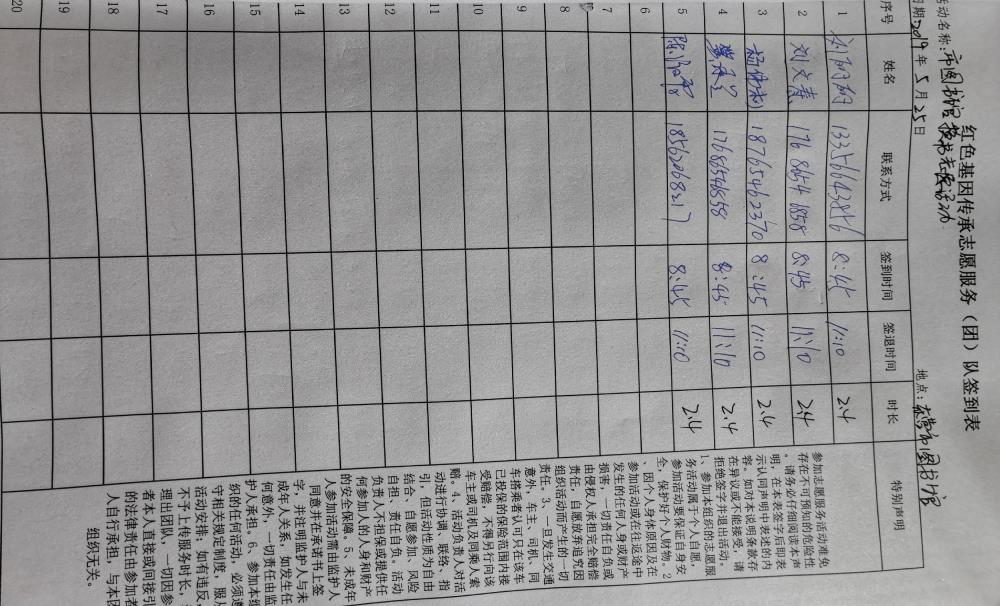 红色基因传承志愿服务（团）队签到表
活动名称：市图书馆
日期：2019年5月25日 地点：东营市图书馆
序号 姓名 联系方式 签到时间 签退时间 时长 特别声明
1 13356643856 8:45 11:10 2.4
2 刘文春 176 8654 6858 8:45 11:10 2.4
3 18765462370 8:45 11:10 2.4
4 17686546858 8:45 11:10 2.4
5 18562068217 8:45 11:10 2.4
6
7
8
9
10
11
12
13
14
15
16
17
18
19
20
参加志愿服务活动难免
存在不可预知的危险性
。请务必仔细阅读本声
明，在本表签名后即表
示认同声明中表述的内
容。如对本说明条款存
在异议或不能接受，请
拒绝签字并退出活动。
1、参加本组织的志愿服
务活动属于个人自愿，
参加活动要保证自身安
全，保护好个人财物。2
、因个人身体原因及在
参加活动或在往返途中
发生的任何人身或财产
损害，一切责任自负或
由侵权人承担完全赔偿
责任，自愿放弃追究因
组织活动而产生的一切
责任。3、一旦发生交通
意外，车主、司机、同
车搭乘者认可只在该车
已投保的保险范围内接
受赔偿，不得另行向该
车主或司机及同乘人索
赔。4、活动负责人对活
动进行协调、联络、指
引，但活动性质为自由
结合、自愿参加、风险
自担、责任自负。活动
负责人不担保或提供任
何参加人的人身和财产
的安全保障。5、未成年
人参加活动需由监护人
同意并在承诺书上签
字，并注明监护人与未
成年人关系，如发生任
何意外，一切责任由监
护人承担。6、参加本组
织的任何活动，必须遵
守相关规定制度，服从
活动安排；如有违反，
不予上传服务时长，
理出团队，一切因参
者本人直接或间接引
的法律责任由参加者
人自行承担，与本团
组织无关。